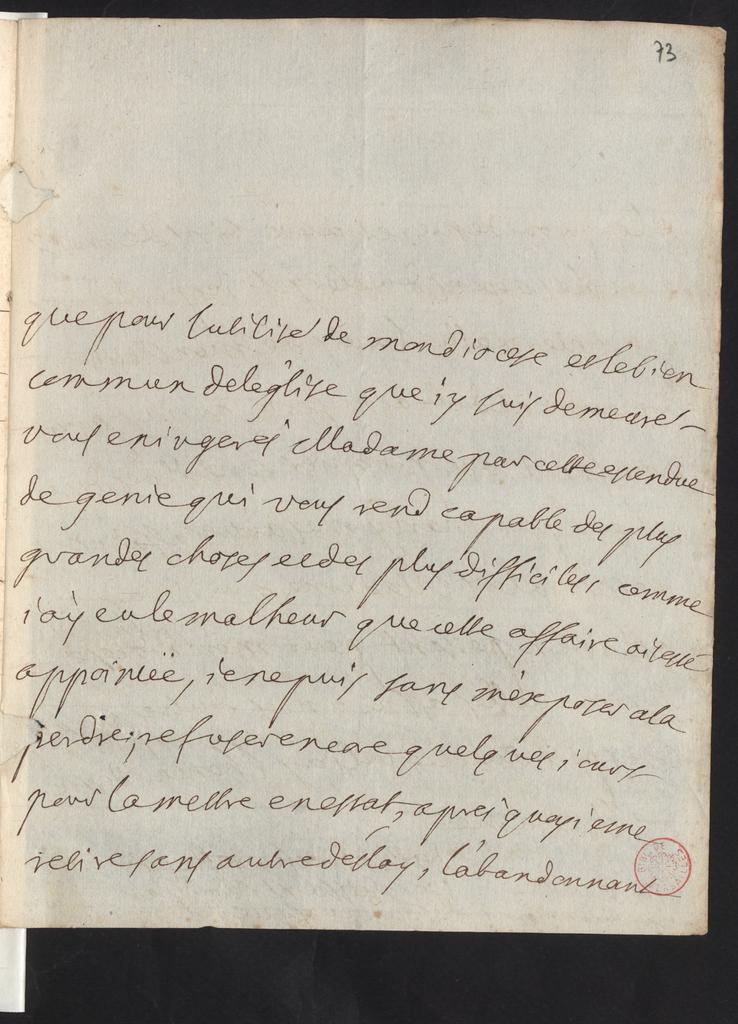 73
que pour l'utilité de mon diocese et le bien
commun de l'eglise que i'y suis demeuré
vous en iugerés Madame par cette estendue
de genie qui vous rend capable des plus
grandes choses et des plus difficiles, comme
i'ay eu le malheur que cette affaire ait esté
appointée, ie ne puis sans m'exposer a la
perdre, refuser encore quelques iours
pour la mettre en estat, apres quoy ie me
retire sans autre deslay, l'abandonnant